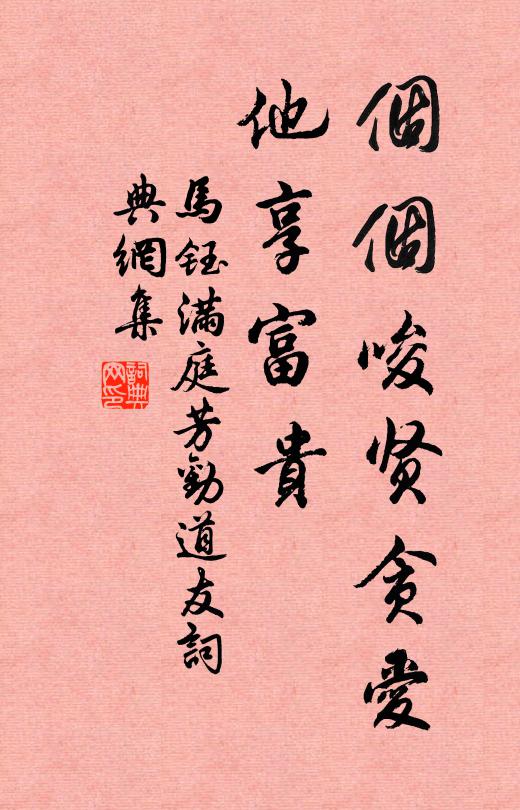 個個唆贤貪愛
他享富貴
馬鈺滿庭芳勸道友詞
典網集
詞典
网印